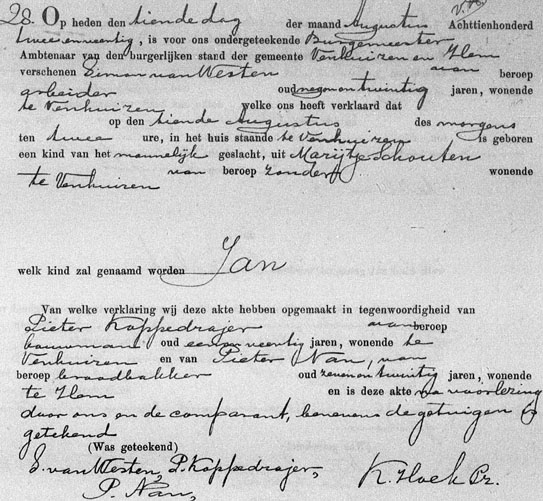 28. Op heden den tiende dag der maand Augustus Achttienhonderd
twee en veertig, is voor ons ondergeteekende Burgemeester
Ambtenaar van den burgerlijken stand der gemeente Venhuizen en Hem
verschenen Simon van Westen van beroep
arbeider oud negen en twintig jaren, wonende
te Venhuizen welke ons heeft verklaard dat
op den tiende Augustus des morgens
ten twee ure, in het huis staande te Venhuizen is geboren
een kind van het mannelijk geslacht, uit Marijtje Schouten
van beroep zonder wonende
te Venhuizen
welk kind zal genaamd worden Jan
Van welke verklaring wij deze akte hebben opgemaakt in tegenwoordigheid van
Pieter Koppedrajer van beroep
bouwman oud een en veertig jaren, wonende te
Venhuizen en van Pieter Nan, van
beroep broodbakker oud zeven en twintig jaren, wonende
te Hem en is deze akte na voorlezing
door ons en de comparant, benevens de getuigen
getekend
(Was geteekend)
S. van Westen, P. Koppedrajer, K. Hoek Pz.
P. Nan,